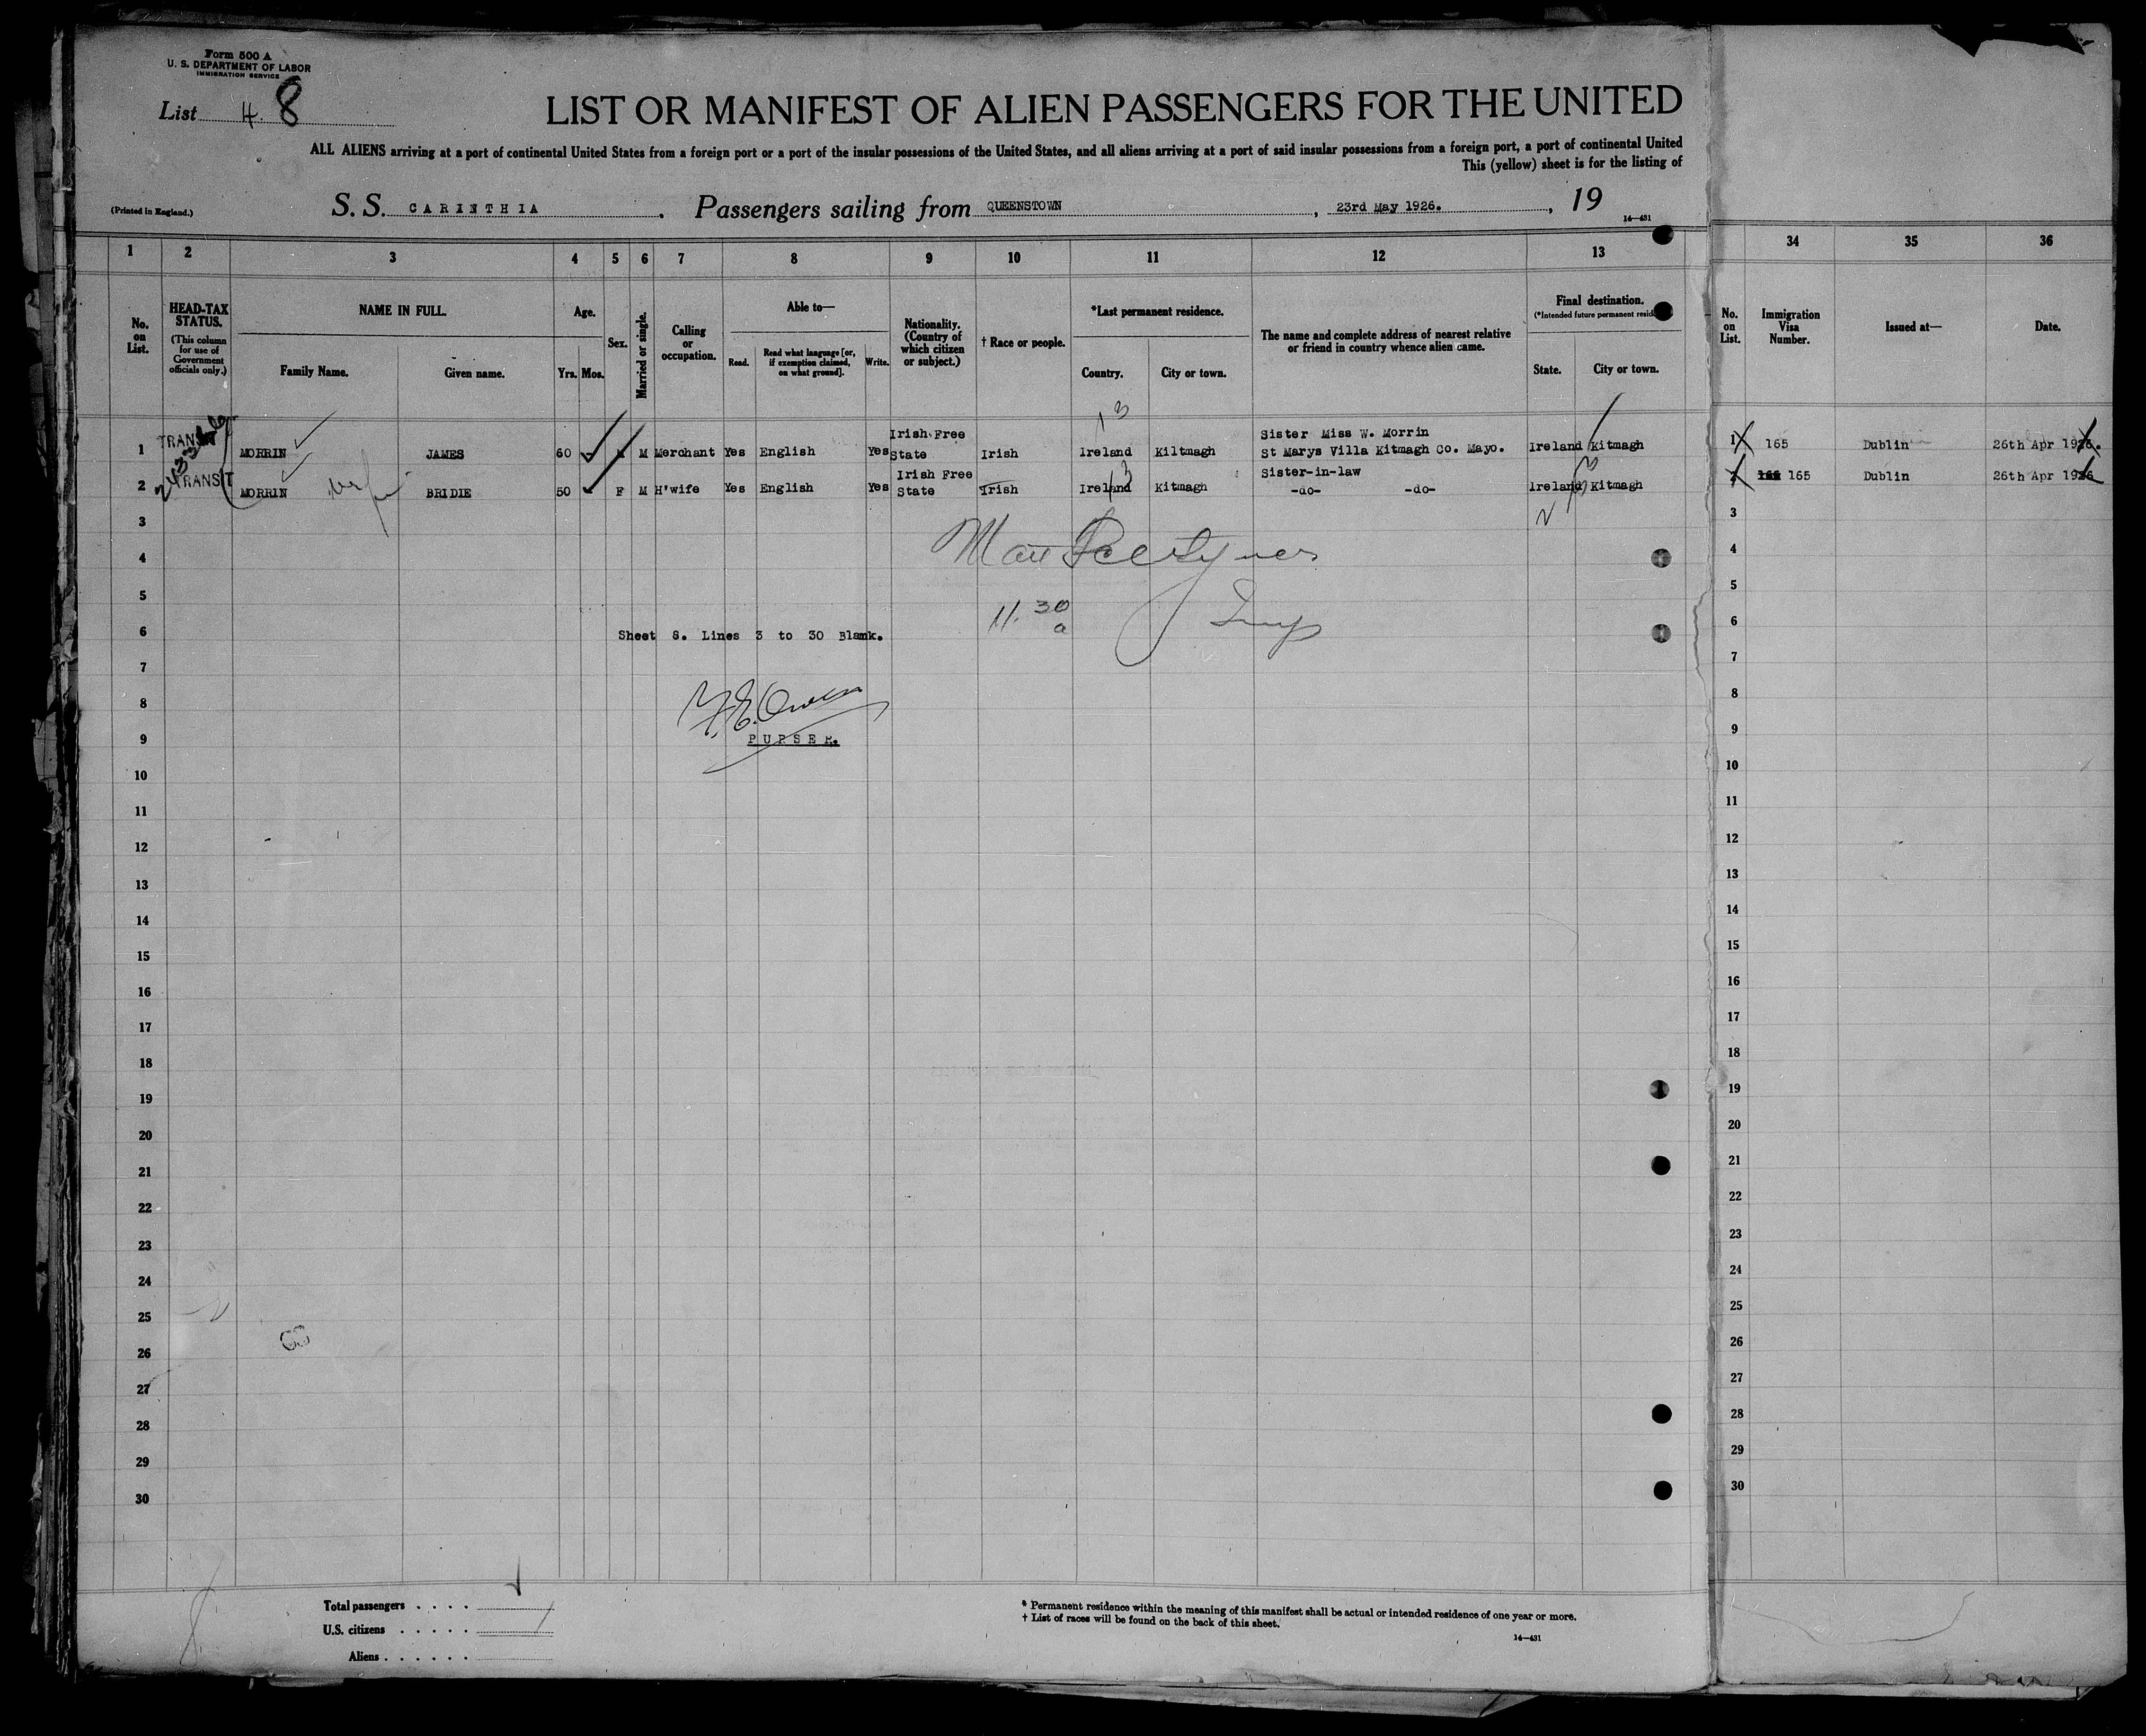 Form 500 A
U. S. DEPARTMENT OF LABOR
IMMIGRATION SERVICE
List 4. 8
LIST OR MANIFEST OF ALIEN PASSENGERS FOR THE UNITED
ALL ALIENS arriving at a port of continental United States from a foreign port or a port of the insular possessions of the United States, and all aliens arriving at a port of said insular possessions from a foreign port, a port of continental United
This (yellow) sheet is for the listing of
(Printed in England.)
S. S. CARINTHIA. Passengers sailing from QUEENSTOWN, 23rd May 1926., 19
14—431
1 2 3 4 5 6 7 8 9 10 11 12 13 34 35 36
No. on List.
HEAD-TAX STATUS.
(This column for use of Government officials only.)
NAME IN FULL.
Family Name. Given name.
Age.
Yrs. Mos.
Sex.
Married or single.
Calling or occupation.
Able to—
Read. Read what language [or, if exemption claimed, on what ground]. Write.
Nationality. (Country of which citizen or subject.)
† Race or people.
*Last permanent residence.
Country. City or town.
The name and complete address of nearest relative or friend in country whence alien came.
Final destination.
(*Intended future permanent resid
State. City or town.
No. on List.
Immigration Visa Number.
Issued at—
Date.
13
1 TRANSIT MORRIN JAMES 60 M M Merchant Yes English Yes Irish Free State Irish Ireland Kiltmagh Sister Miss W. Morrin St Marys Villa Kitmagh Co. Mayo. Ireland Kitmagh 1 165 Dublin 26th Apr 1926.
2 TRANSIT MORRIN wife BRIDIE 50 F M H'wife Yes English Yes Irish Free State Irish Ireland Kitmagh Sister-in-law -do- -do- Ireland Kitmagh 2 165 Dublin 26th Apr 1926
3 3
4 4
5 11.30 a 5
6 Sheet 8. Lines 3 to 30 Blank. 6
7 7
8 8
9 PURSER. 9
10 10
11 11
12 12
13 13
14 14
15 15
16 16
17 17
18 18
19 19
20 20
21 21
22 22
23 23
24 24
25 25
26 26
27 27
28 28
29 29
30 30
Total passengers . . . .
U.S. citizens . . . . .
Aliens . . . . . .
* Permanent residence within the meaning of this manifest shall be actual or intended residence of one year or more.
† List of races will be found on the back of this sheet.
14—431